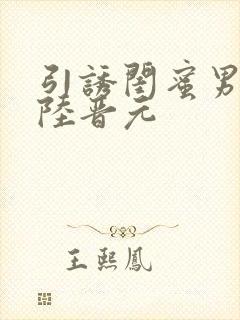 引誘閨蜜男
陸晋元
王熙鳳